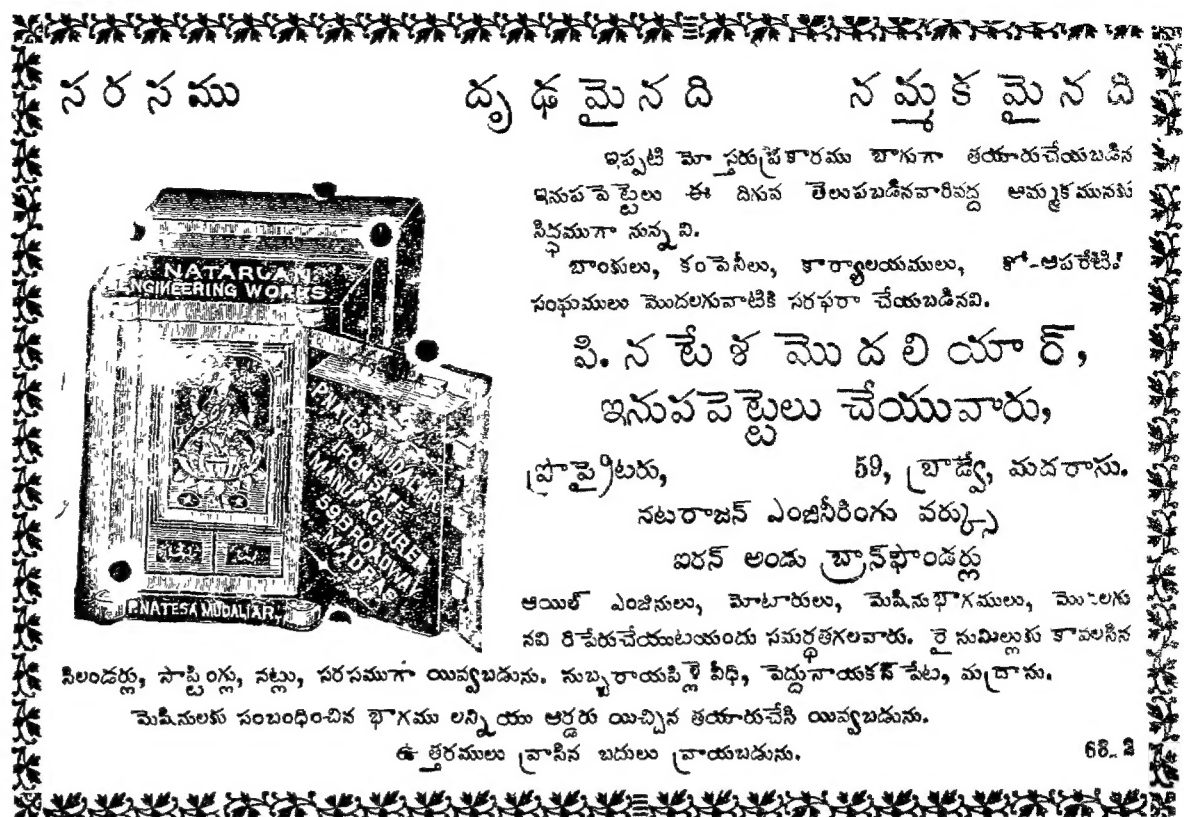 సరసము దృఢమైనది నమ్మకమైనది
ఇప్పటి మోస్తరుప్రకారము బాగుగా తయారుచేయబడిన
ఇనుపపెట్టెలు ఈ దిగువ తెలుపబడినవారివద్ద అమ్మకమునకు
సిద్ధముగా నున్నవి.
బాంకులు, కంపెనీలు, కార్యాలయములు, కో-ఆపరేటివ్
సంఘములు మొదలగువాటికి సరఫరా చేయబడినవి.
పి. నటేశ మొదలియార్,
ఇనుపపెట్టెలు చేయువారు,
ప్రొప్రైటరు, 59, బ్రాడ్వే, మదరాసు.
నటరాజన్ ఎంజినీరింగు వర్క్సు
ఐరన్ అండు బ్రాన్‌ఫౌండర్లు
ఆయిల్ ఎంజినులు, మోటారులు, మెషినుభాగములు, మొదలగు
నవి రిపేరుచేయుటయందు సమర్థతగలవారు. రైసుమిల్లుకు కావలసిన
సిలండర్లు, సాప్టింగ్లు, నట్లు, సరసముగా యివ్వబడును. సుబ్బరాయపిళ్లె వీధి, పెద్దునాయకన్ పేట, మద్రాసు.
మెషినులకు సంబంధించిన భాగము లన్నియు ఆర్డరు యిచ్చిన తయారుచేసి యివ్వబడును.
ఉత్తరములు వ్రాసిన బదులు వ్రాయబడును.
NATARAJAN
ENGINEERING WORKS
P.NATESA MUDALIAR
IRON SAFE
MANUFACTURER
59 BROADWAY
MADRAS
P.NATESA MUDALIAR,